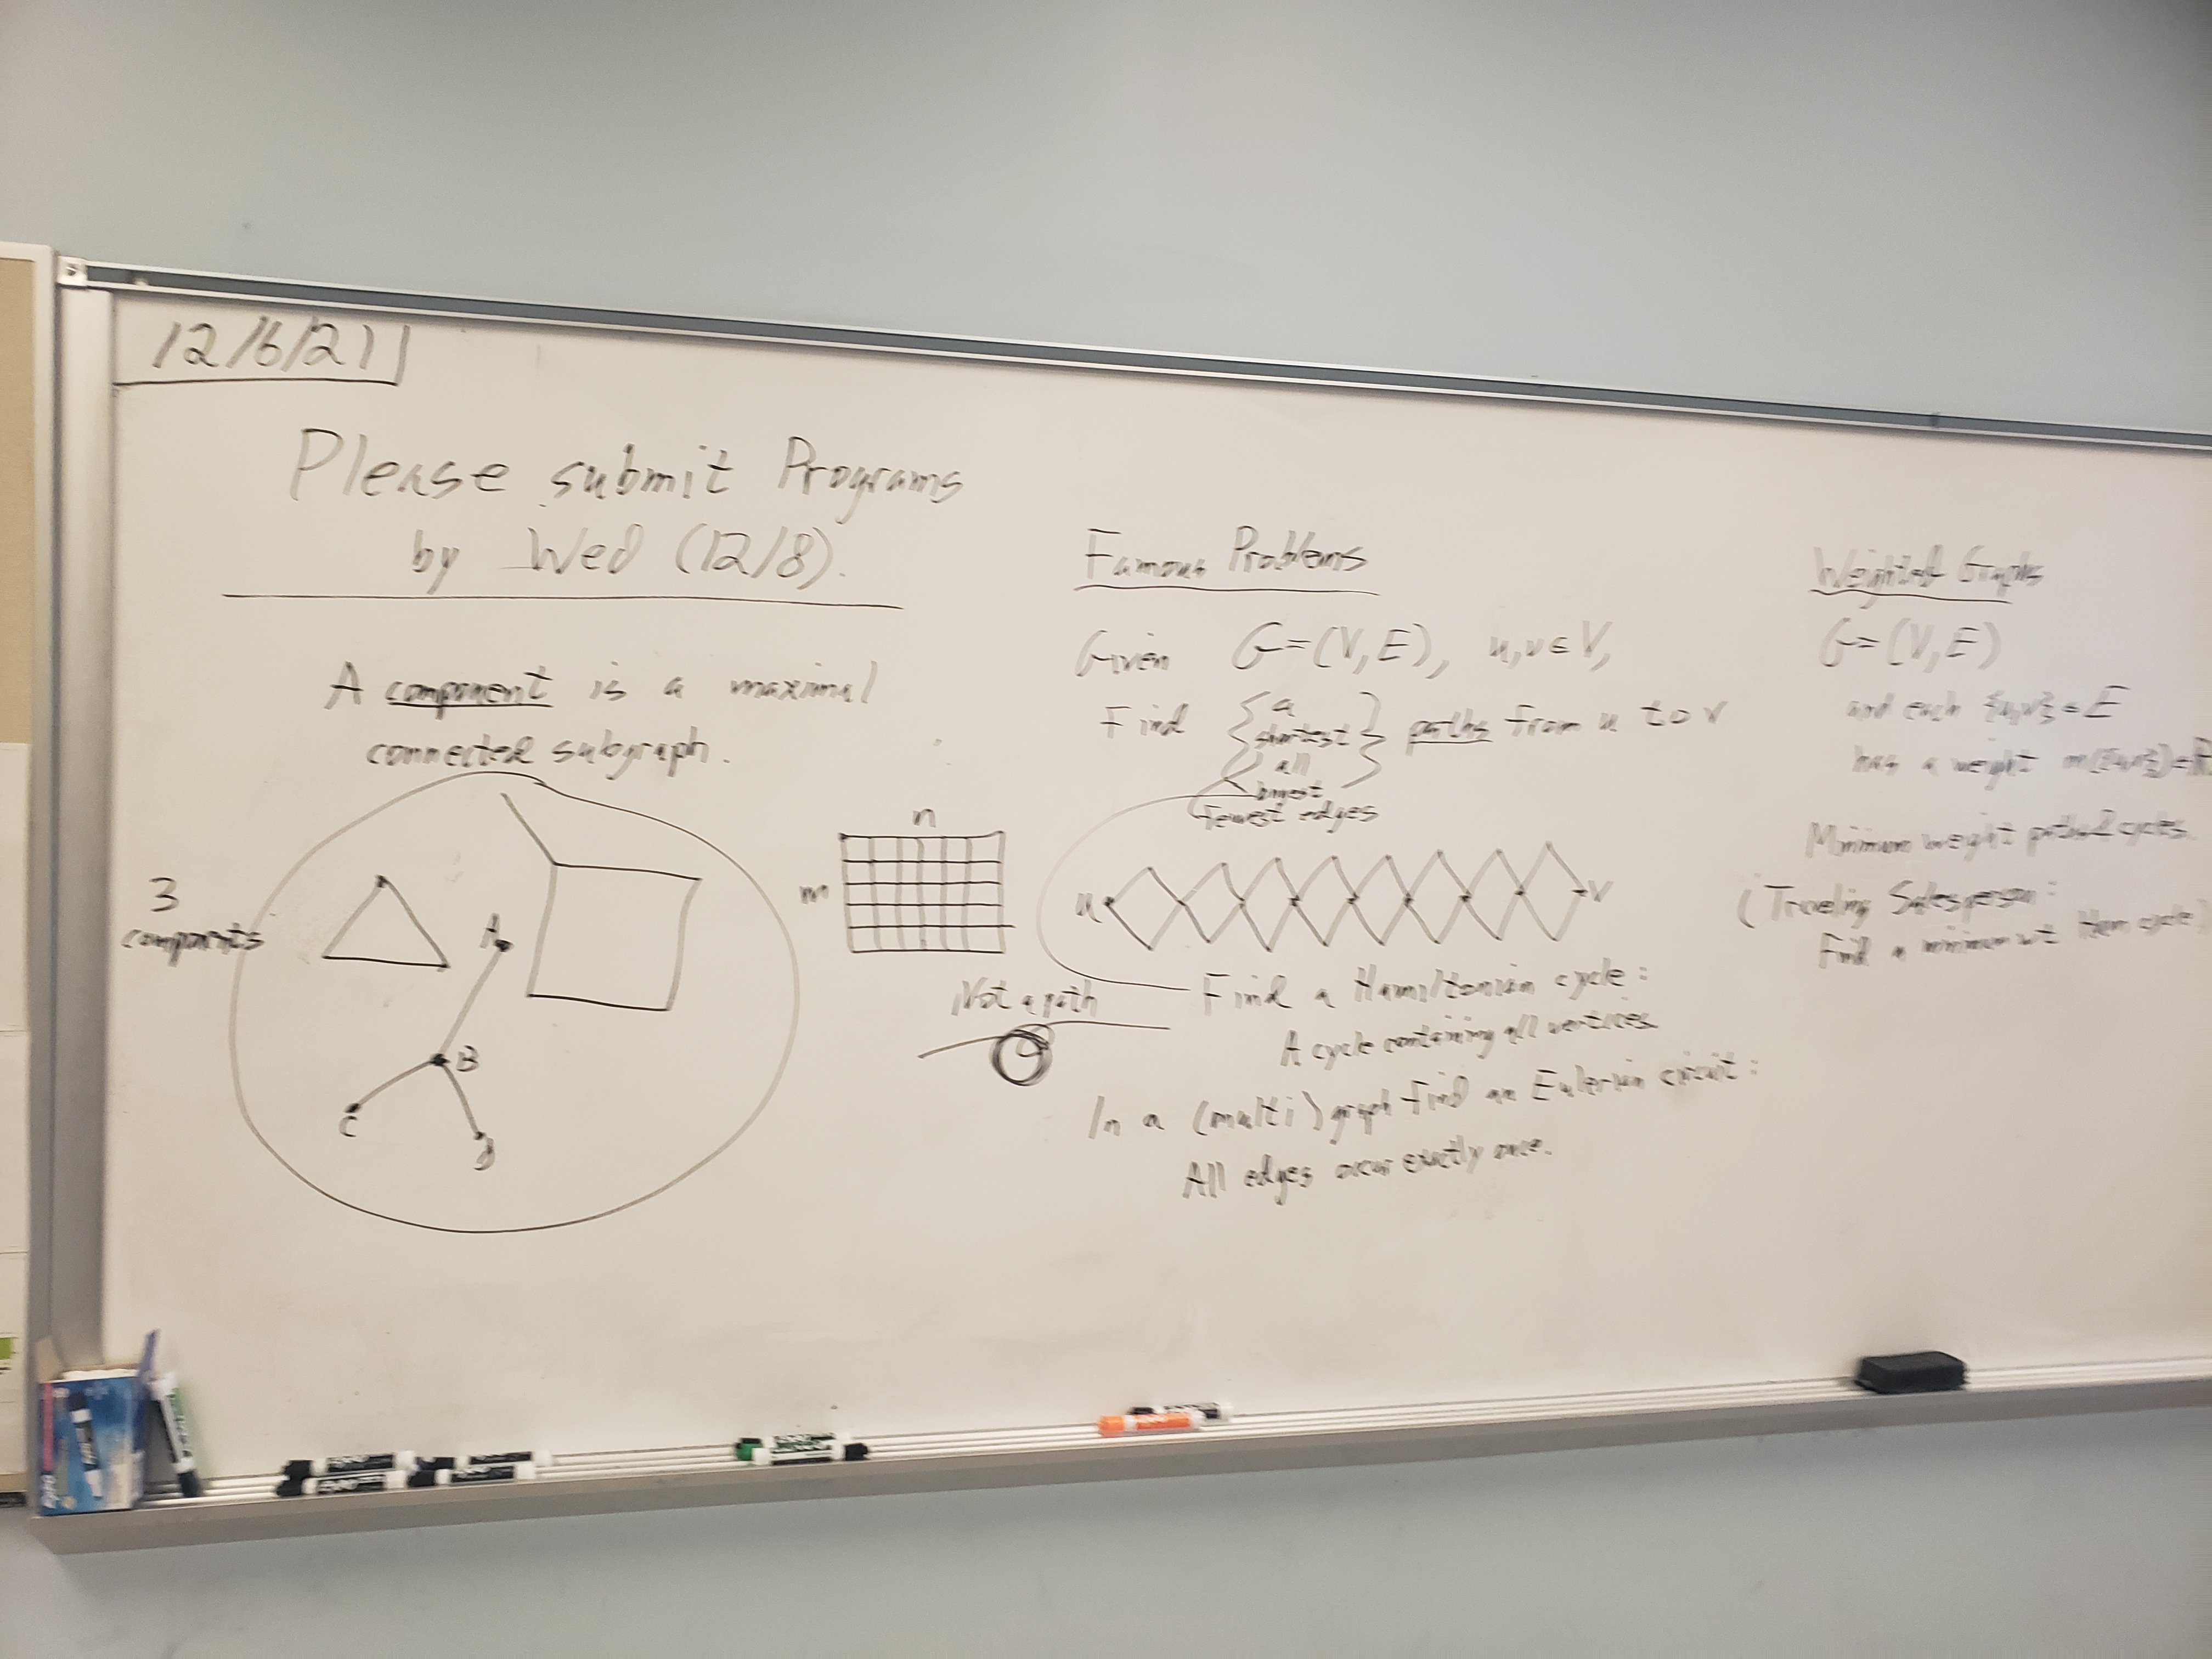 12/6/21
Please submit Programs
by Wed (12/8).
A component is a maximal
connected subgraph.
3
components
A
B
C
D
n
m
Not a path
Famous Problems
Given G=(V,E), u,v∈V,
Find { a
shortest
all
longest } paths from u to v
fewest edges
u
v
Find a Hamiltonian cycle:
A cycle containing all vertices
In a (multi)graph find an Eulerian circuit:
All edges occur exactly once.
Weighted Graphs
G=(V,E)
and each {u,v}∈E
has a weight m({u,v})∈R
Minimum weight paths & cycles.
(Traveling Salesperson:
Find a minimum wt Ham cycle)